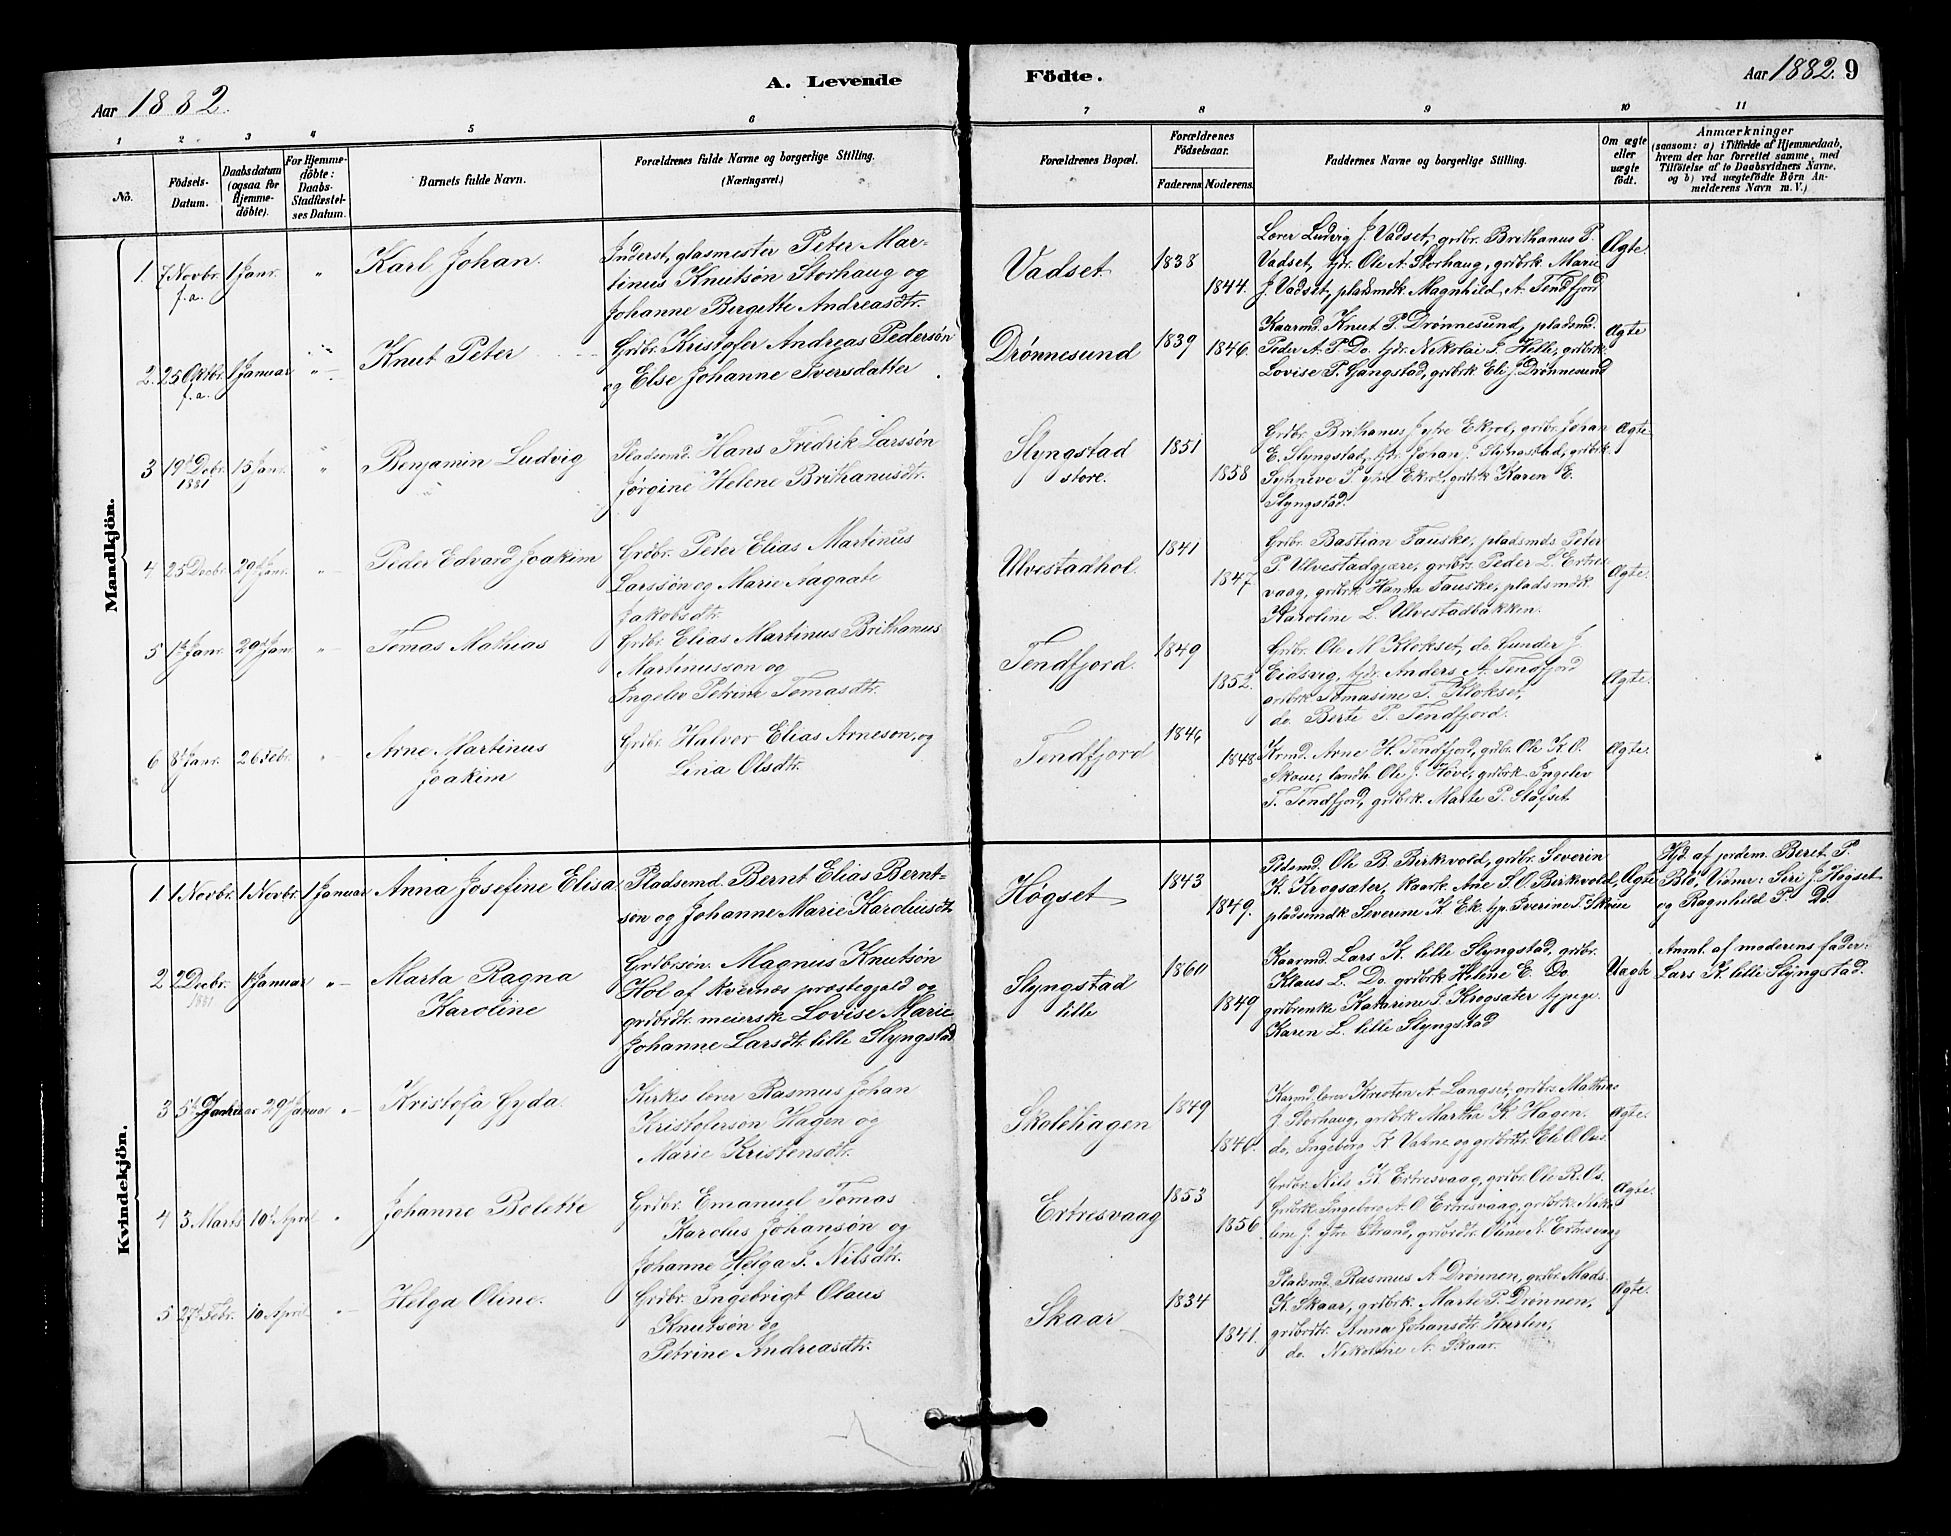 Aar 1882.
A. Levende
Födte.
Aar 1882. 9
1 2 3 4 5 6 7 8 9 10 11
No.
Födsels-Datum.
Daabsdatum (ogsaa for Hjemmedöbte).
For Hjemmedöbte: Daabs-Stadfæstelses Datum.
Barnets fulde Navn.
Forældrenes fulde Navne og borgerlige Stilling.
(Næringsvei.)
Forældrenes Bopæl.
Forældrenes Födselsaar.
Faderens. Moderens.
Faddernes Navne og borgerlige Stilling.
Om ægte eller uægte födt.
Anmærkninger
(saasom: a) i Tilfælde af Hjemmedaab, hvem der har forrettet samme, med Tilföielse af to Daabsvidners Navne, og b) ved uægtefödte Börn Anmelderens Navn m. V.)
Mandkjön.
1. 7 Novbr. f.a. 1 Janr. " Karl Johan.
Inderst, glasmester Peter Mar-
tinus Knutsön Storhaug og
Johanne Birgitte Andreasdtr.
Vadset 1838 1844.
Lærer Ludvig J. Vadset, grdbr. Brithanus P.
Vadset, tjdr. Ole A. Storhaug, grdbrk. Marie
J. Vadset, pladsmdk. Magnhild A. Tendfjord
Ægte.
2. 25 Oktbr. f.a. 1 Januar " Knut Peter
Grdbr. Kristofer Andreas Pedersön
og Else Johanne Iversdatter.
Drønnesund 1839 1846.
Kaarmd. Knut P. Drønnesund, pladsmd.
Peder A. P. Do. tjdr. Nikolai J. Helle, grdbrk.
Lovise P. Gangstad, grdbrk. Eli J. Drønnesund
Ægte
3 19d Debr. 1881 15 Janr. " Benjamin Ludvig
Pladsmd. Hans Fredrik Larssön
Jørgine Helene Brithanusdtr.
Slyngstad store. 1851 1858
Grdbr. Brithanus J. ytre Ekrol, grdbr. Johan
E. Slyngstad, tjdr. Johan J. Slyngstad, grdbrk.
Synneve P. ytre Ekrol, grdbrk. Karen E.
Slyngstad.
Ægte
4 25 Decbr. 29d Janr. " Peder Edvard Joakim
Grdbr. Peter Elias Martinus
Larssön og Marie Aagaate
Jakobsdtr.
Ulvestadhol. 1841 1847.
Grdbr. Bastian Tauske, pladsmds Peter
P. Ulvestadgjære, grdbrs. Peder L. Ertres-
vaag, grdbrk. Hanna Tauske, pladsmdk.
Karoline L. Ulvestadbakken.
Ægte.
5 1d Janr. 29d Janr. " Tomas Mathias
Grdbr. Elias Martinus Brithanus
Martinusson og
Ingelev Petrine Tomasdtr.
Tendfjord. 1849 1852.
Grdbr. Ole N. Klokset, do. Gunder J.
Eidsvig, tjdr. Anders A. Tendfjord
grdbrk. Tomasine T. Klokset,
do. Berte P. Tendfjord.
Ægte.
6 8d Janr. 26 Febr. " Arne Martinus
Joakim
Grdbr. Halvor Elias Arneson, og
Lina Olsdtr.
Tendfjord 1846 1848
Krmd. Arne H. Tendfjord, grdbr. Ole K. O.
Skoue, landh. Ole J. Hove, grdbrk. Ingelev
T. Tendfjord, grdbrk. Marte P. Slafset
Ægte.
Kvindekjön.
1 1 Novbr. 1 Novbr. 1 Januar Anna Josefine Elisa
Pladsemd. Bernt Elias Bernt-
sön og Johanne Marie Karoliusdt.
Høgset 1843 1849.
Pldsmd. Ole B. Birkvold, grdbr. Severin
K. Krogsater, kaark. Ane S. O. Birkvold,
pladsmdk. Severine K. Ek. tjp. Iverine T. Skoue
Ægte
Hjd. af jordem. Beret P.
Blø, Vidner: Siri J. Høgset
og Ragnhild P. Do.
2 2 Decbr. 1881 1 Januar " Marta Ragna
Karoline
Grdbrsön. Magnus Knutsön
Hol af Kvernæs præstegjæld og
grdbrdtr. meierske Lovise Marie
Johanne Larsdtr. lille Slyngstad
Slyngstad lille 1860 1849
Kaarmd. Lars K. lille Slyngstad, grdbr.
Klaus L. Do. grdbrk. Helene E. Do.
grdbrenke Katarine J. Krogsater tjpige.
Karen L. lille Slyngstad
Uægte
Anml. af moderens fader:
Lars K. lille Slyngstad.
3 5d Januar 29d Januar " Kristofa Gyda.
Kirkes. lærer Rasmus Johan
Kristoferson Hagen og
Marie Kristensdtr.
Skolehagen 1849 1846.
Karmd. lærer Knerten A. Langset, grdbrs. Mathias
J. Storhaug, grdbrk. Martha K. Hagen.
do. Ingeborg K. Vabne og grdbrdtr. Eli O. Ous.
Ægte.
4 3 Marts 10d April " Johanne Bolette
Grdbr. Emanuel Tomas
Karolus Johansøn og
Johanne Helga J. Nilsdtr.
Ertresvaag 1853 1856.
Grdbr. Nils K. Ertresvaag, grdbr. Ole R. Os.
Grdbrk. Ingeborg A. O. Ertresvaag, grdbrk. Niko-
line J. ytre Strand, grdbrdtr. Oline N. Ertresvaag
Ægte.
5 27d Febr. 10 April " Helga Oline.
Grdbr. Ingebrigt Olaus
Knutsön og
Petrine Andreasdtr.
Skaar 1834 1841.
Pladsmd. Rasmus A. Drønnen, grdbr. Mads.
K. Skaar, grdbrk. Marte P. Drønnen,
grdbrdtr. Anna Johansdtr. Hurlen,
do. Nikoline A. Skaar.
Ægte.